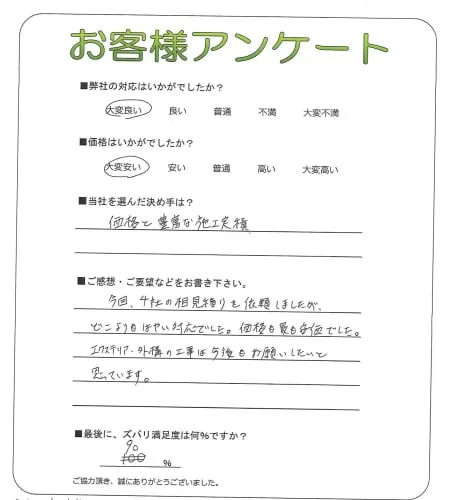 お客様アンケート
■弊社の対応はいかがでしたか？
大変良い 良い 普通 不満 大変不満
■価格はいかがでしたか？
大変安い 安い 普通 高い 大変高い
■当社を選んだ決め手は？
価格と豊富な施工実積
■ご感想・ご要望などをお書き下さい。
今回、4社の相見積りを依頼しましたが、
どこよりもはやい対応でした。価格も最も安価でした。
エクステリア・外構の工事は今後もお願いしたいと
思っています。
■最後に、ズバリ満足度は何%ですか？
90
100 %
ご協力頂き、誠にありがとうございました。